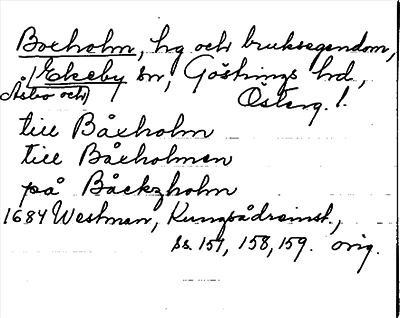 Boxholm, hg och bruksegendom,
Ekeby sn, Göstrings hd,
(Åsbo och) Österg. l.
till Båxholm
till Båxholmen
på Båckzholm
1684 Westman, Kungsådreinst.,
ss. 157, 158, 159. orig.